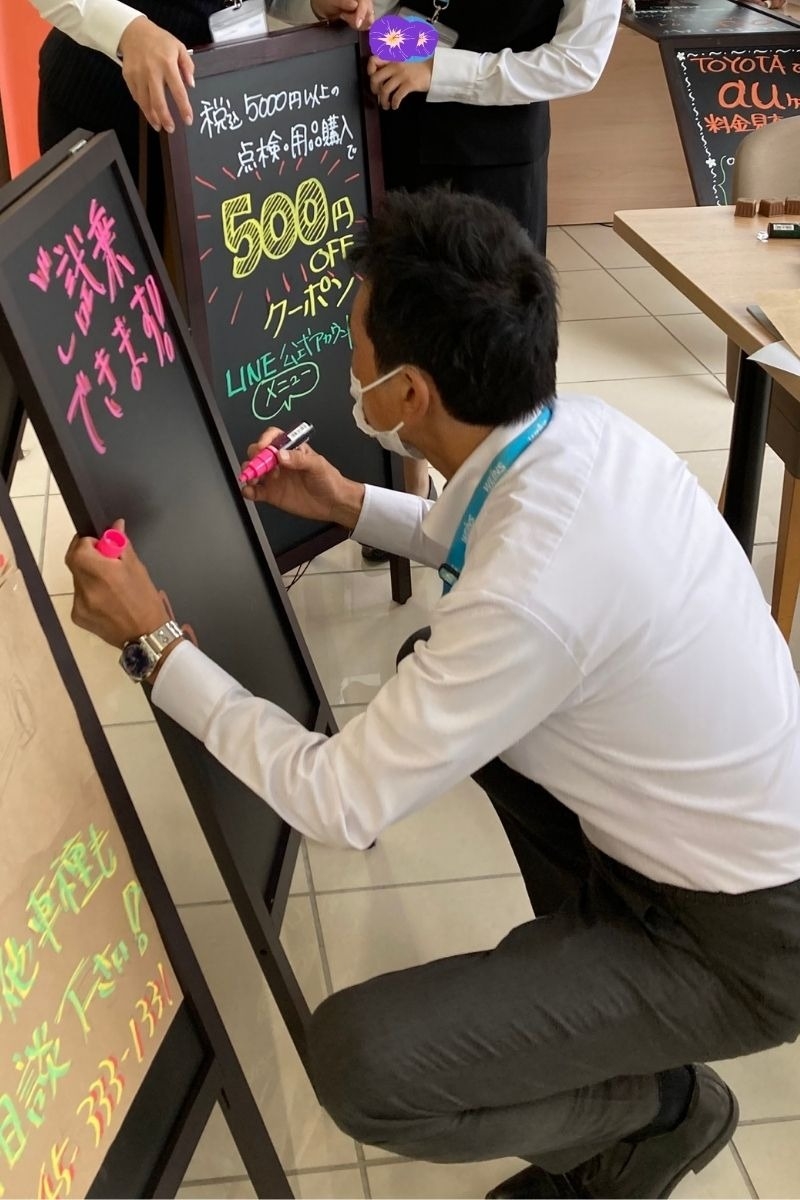 税込5000円以上の
点検・用品購入で
500円
OFF
クーポン
LINE公式アカウント
メニュー
"試乗
できます!!
TOYOTAで
au
料金見
WEINS
他車種も
相談下さい!
45-333-1331